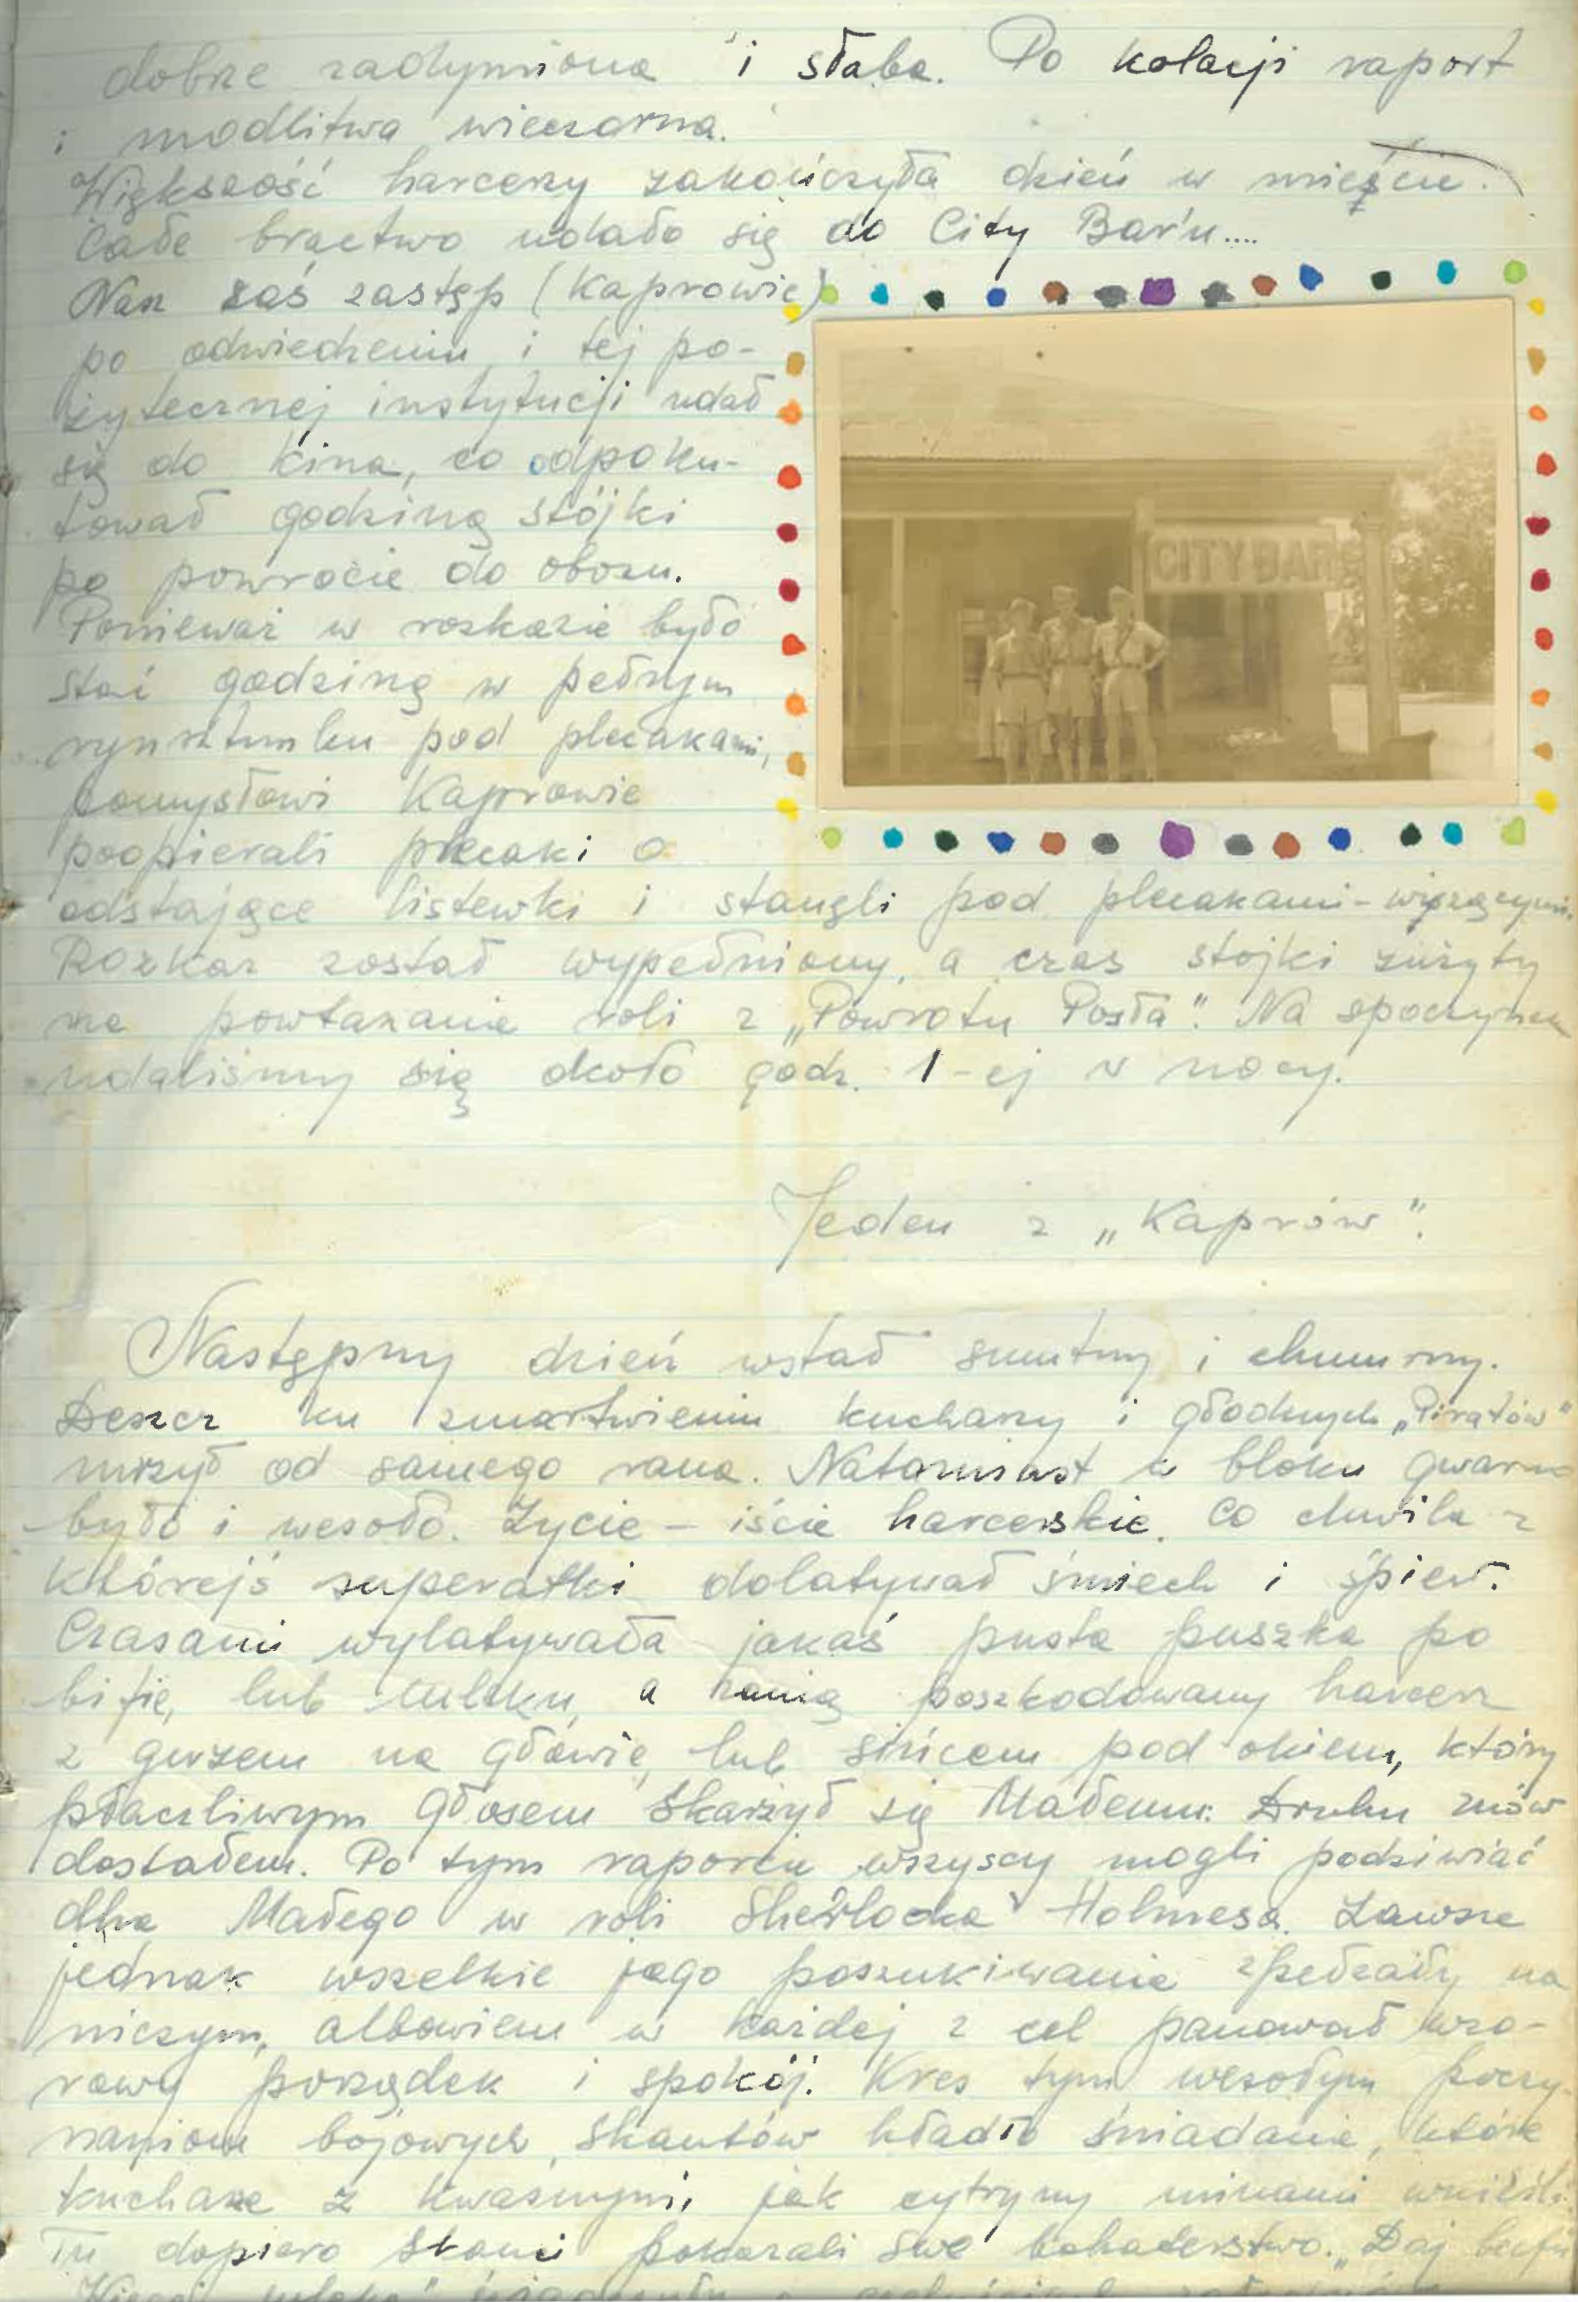 dobrze zadymiona i słaba. Po kolacji raport
i modlitwa wieczorna.
Większość harcerzy zakończyła dzień w mieście.
Całe bractwo udało się do City Bar'u....
Nasz zaś zastęp (Kaprowie)
po odwiedzeniu i tej po-
żytecznej instytucji udał
się do kina, co odpoku-
tował godziną stójki
po powrocie do obozu.
Ponieważ w rozkazie było
stać godzinę w pełnym
rynsztunku pod plecakami,
pomysłowi Kaprowie
poopierali plecaki o
odstające listewki i stanęli pod plecakami - wiszącymi.
Rozkaz został wypełniony, a czas stójki zużyty
na powtarzanie roli z „Powrotu Posła". Na spoczynek
udaliśmy się około godz. 1-ej w nocy.
Jeden z „Kaprów".
Następny dzień wstał smutny i chmurny.
Deszcz ku zmartwieniu kucharzy i głodnych „Piratów"
mżył od samego rana. Natomiast w bloku gwarno
było i wesoło. Życie - iście harcerskie. Co chwila z
którejś separatki dolatywał śmiech i śpiew.
Czasami wylatywała jakaś pusta puszka po
bifie, lub mleku, a za nią poszkodowany harcerz
z guzem na głowie, lub sińcem pod okiem, który
płaczliwym głosem skarżył się Małemu: Druhu znów
dostałem. Po tym raporcie wszyscy mogli podziwiać
dha Małego w roli Sherlocka Holmesa. Zawsze
jednak wszelkie jego poszukiwania spełzały na
niczym, albowiem w każdej z cel panował wzo-
rowy porządek i spokój. Kres tym wesołym poczy-
naniom bojowych skautów kładło śniadanie, które
kucharze z kwaśnymi jak cytryny minami wnieśli.
Tu dopiero skauci pokazali swe bohaterstwo. „Daj beefu
CITY BAR